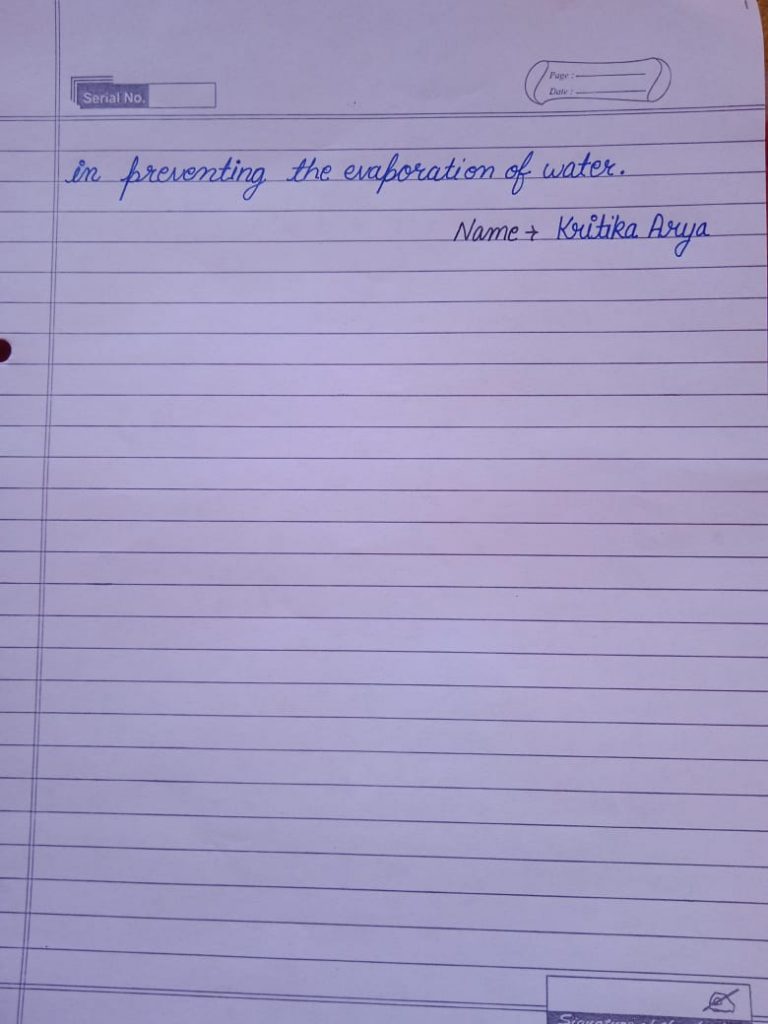 Serial No.
Page :
Date :
in preventing the evaporation of water.
Name → Kritika Arya